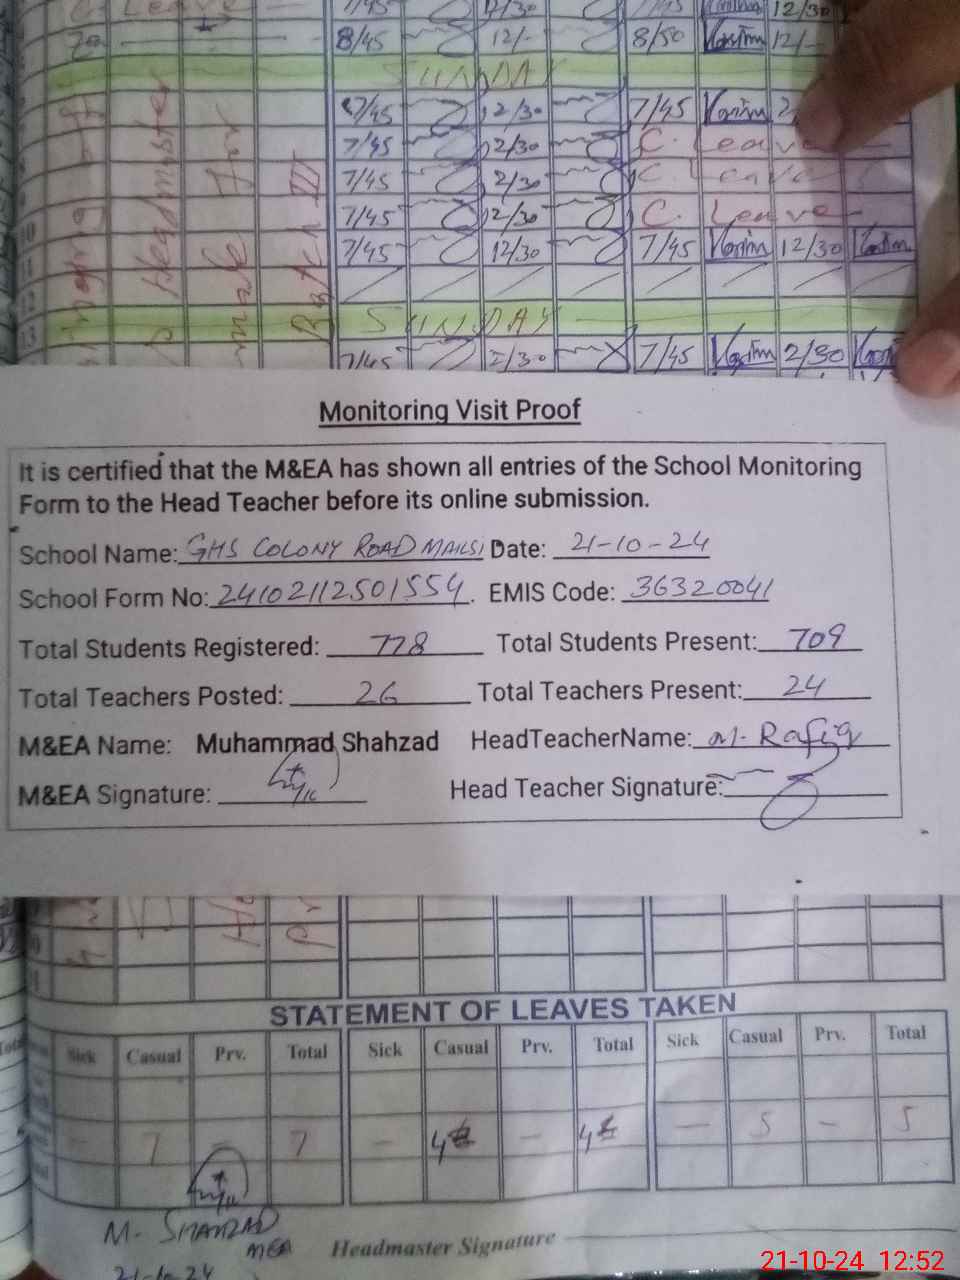 C. Leave 7/45 12/30 7/45 12/30
8/45 12/- 8/50 Kasim 12/-
SUNDAY
7/45 12/30 7/45
7/45 12/30 C. Leave
7/45 12/30 C. Leave
7/45 12/30 C. Leave
7/45 12/30 7/45 12/30
SUNDAY
7/45 12/30 7/45 12/30
Headmaster
Batch III
Monitoring Visit Proof
It is certified that the M&EA has shown all entries of the School Monitoring
Form to the Head Teacher before its online submission.
School Name: GHS COLONY ROAD MAILSI Date: 21-10-24
School Form No: 24102112501554. EMIS Code: 36320041
Total Students Registered: 778 Total Students Present: 709
Total Teachers Posted: 26 Total Teachers Present: 24
M&EA Name: Muhammad Shahzad HeadTeacherName: M. Rafiq
M&EA Signature: Head Teacher Signature:
STATEMENT OF LEAVES TAKEN
Sick Casual Prv. Total Sick Casual Prv. Total Sick Casual Prv. Total
- 7 - 7 - 4 - 4 - 5 - 5
M. SHAHZAD
MEA
21-10-24
Headmaster Signature
21-10-24 12:52